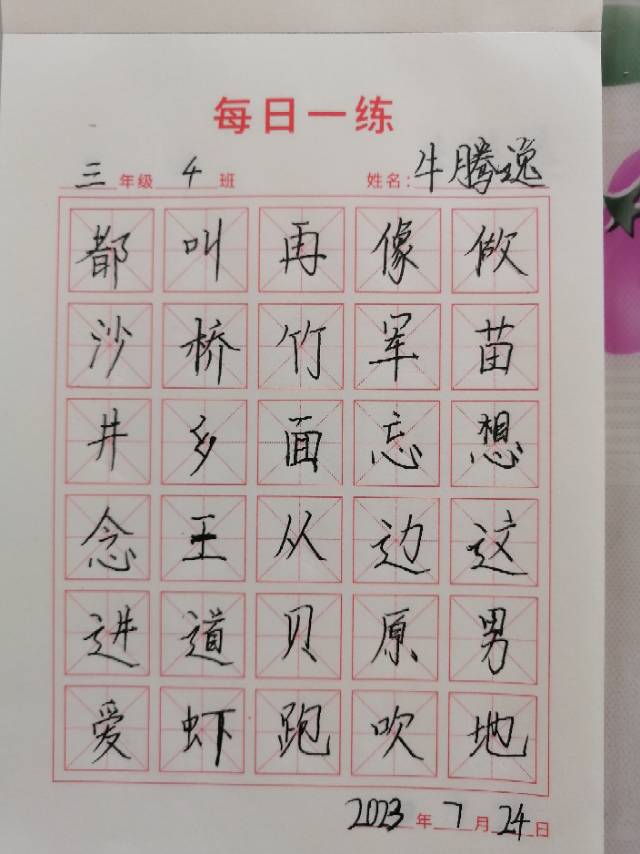 每日一练
三年级 4班 姓名：牛腾逸
都叫再像做
沙桥竹军苗
井乡面忘想
念王从边这
进道贝原男
爱虾跑吹地
2023年7月24日